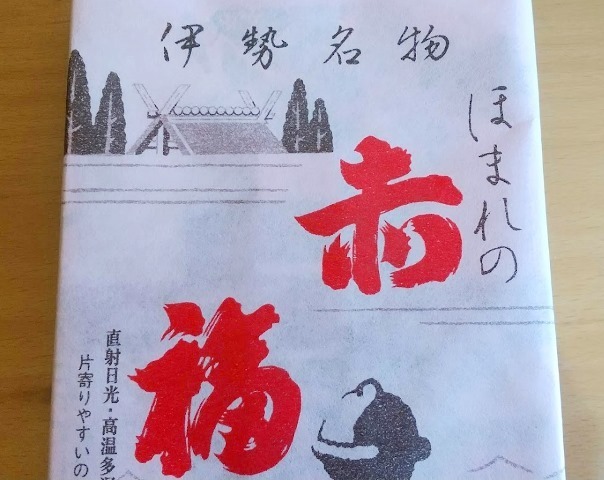 伊勢名物
ほまれの
赤
福
直射日光・高温多湿
片寄りやすいの